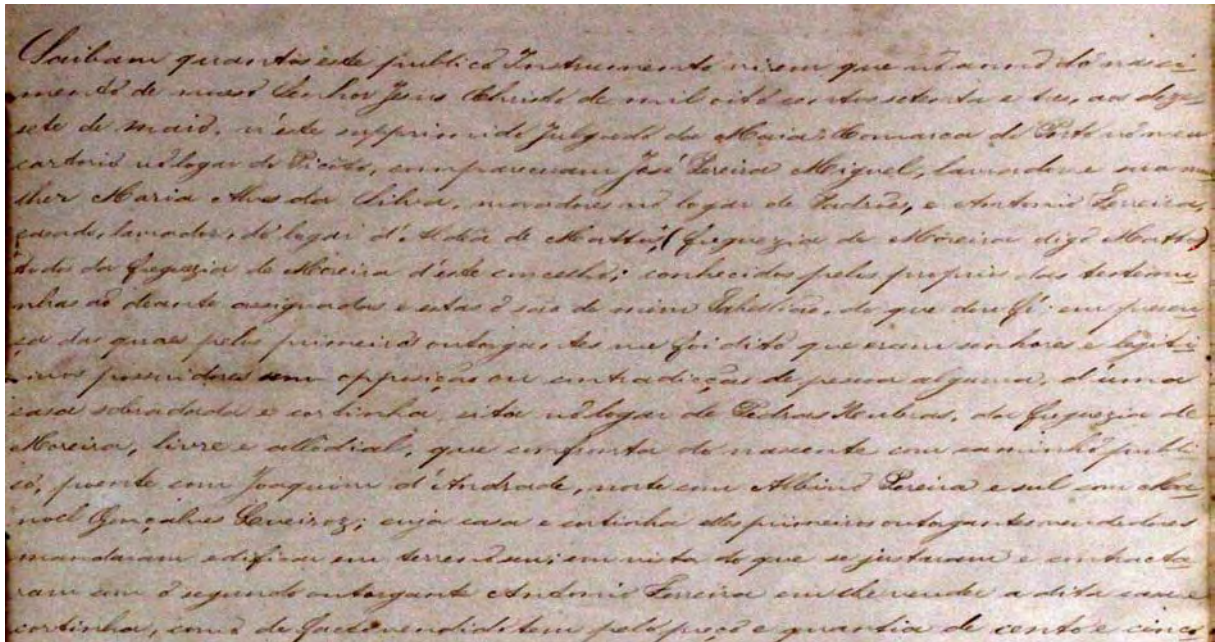 Saibam quantos este publico Instrumento virem que nó anno dó nasci-
mentó de nosso Senhor Jesus Christó de mil oito centos setenta e tres, aos deze-
sete de maió, n'este supprimido Julgado da Maia, Comarca do Porto nó meu
cartorió nó logar do Picóto, compareceram José Pereira Miguel, lavrador e sua mu-
lher Maria Alves da Silva, moradores nó logar de Padrós, e Antonio Ferreira,
casado, lavrador, dó logar d'Aldêa de Mattó, (freguezia de Moreira digó Matto)
todos da freguezia de Moreira d'este concelhó; conhecidos pelos proprios das testemu-
nhas aó diante assignadas e estas ó são de mim Tabellião, do que dou fé: em presen-
ça das quaes pelos primeiros outorgantes me foi dito que eram senhores e legiti-
mos possuidores sem opposição ou contradicção de pessoa alguma, d'uma
casa sobradada e cortinha, sita nó logar de Pedras Rubras, da freguezia de
Moreira, livre e allódial, que confronta do nascente com caminhó publi-
có, poente com Joaquim d'Andrade, norte com Albinó Pereira e sul com Ma-
noel Gonçalves Queiroz; cuja casa e cortinha elles primeiros outorgantes vendedores
mandaram edificar em terrenó seu; em vista do que se justaram e contracta-
ram com ó segundo outorgante Antonio Ferreira em lhe vender a dita casa e
cortinha, comó de facto vendido tem peló preçó e quantia de cento e cinco-